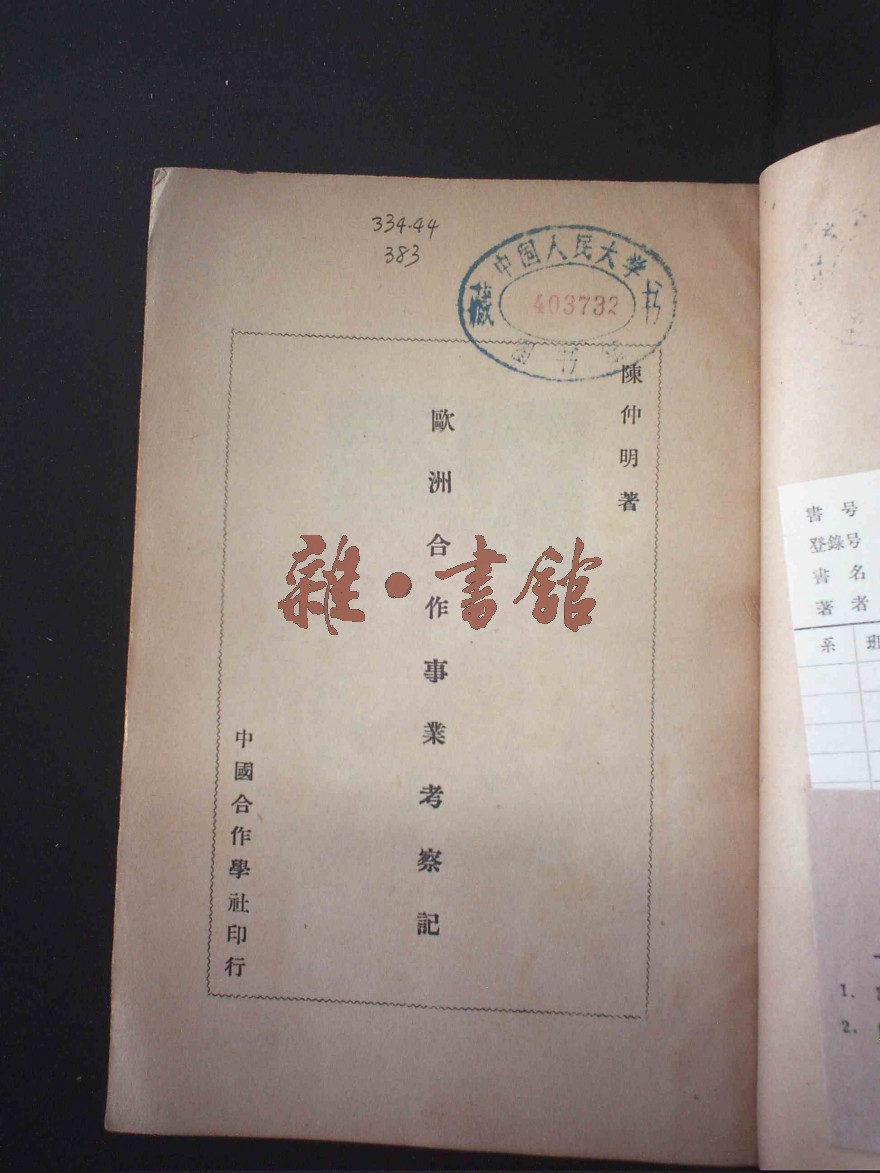 334.44
383
中国人民大学
藏书
403732
图书
陳仲明著
歐洲合作事業考察記
中國合作學社印行
雜·書館
書号
登錄号
書名
著者
系 班
1.
2.